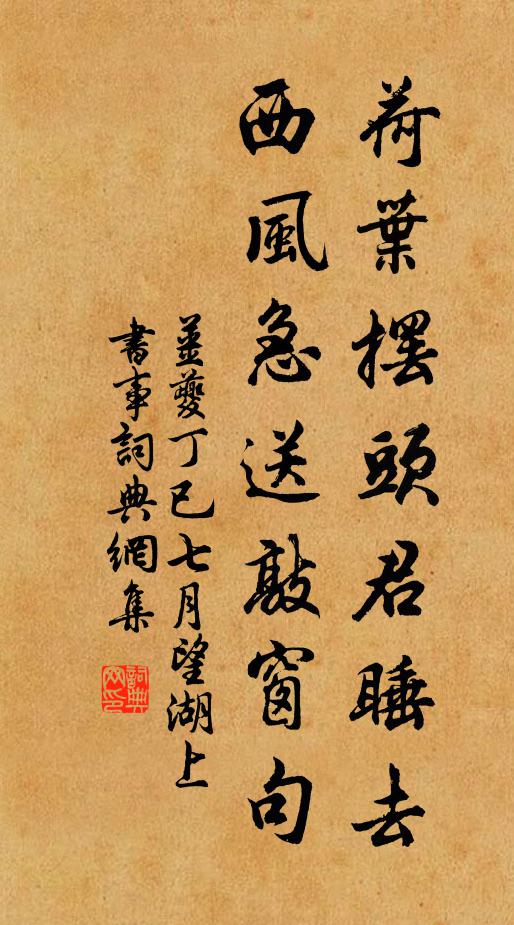 荷葉擺頭君睡去
西風急送敲窗句
姜夔丁巳七月望湖上
書事詞典網集
詞典網印